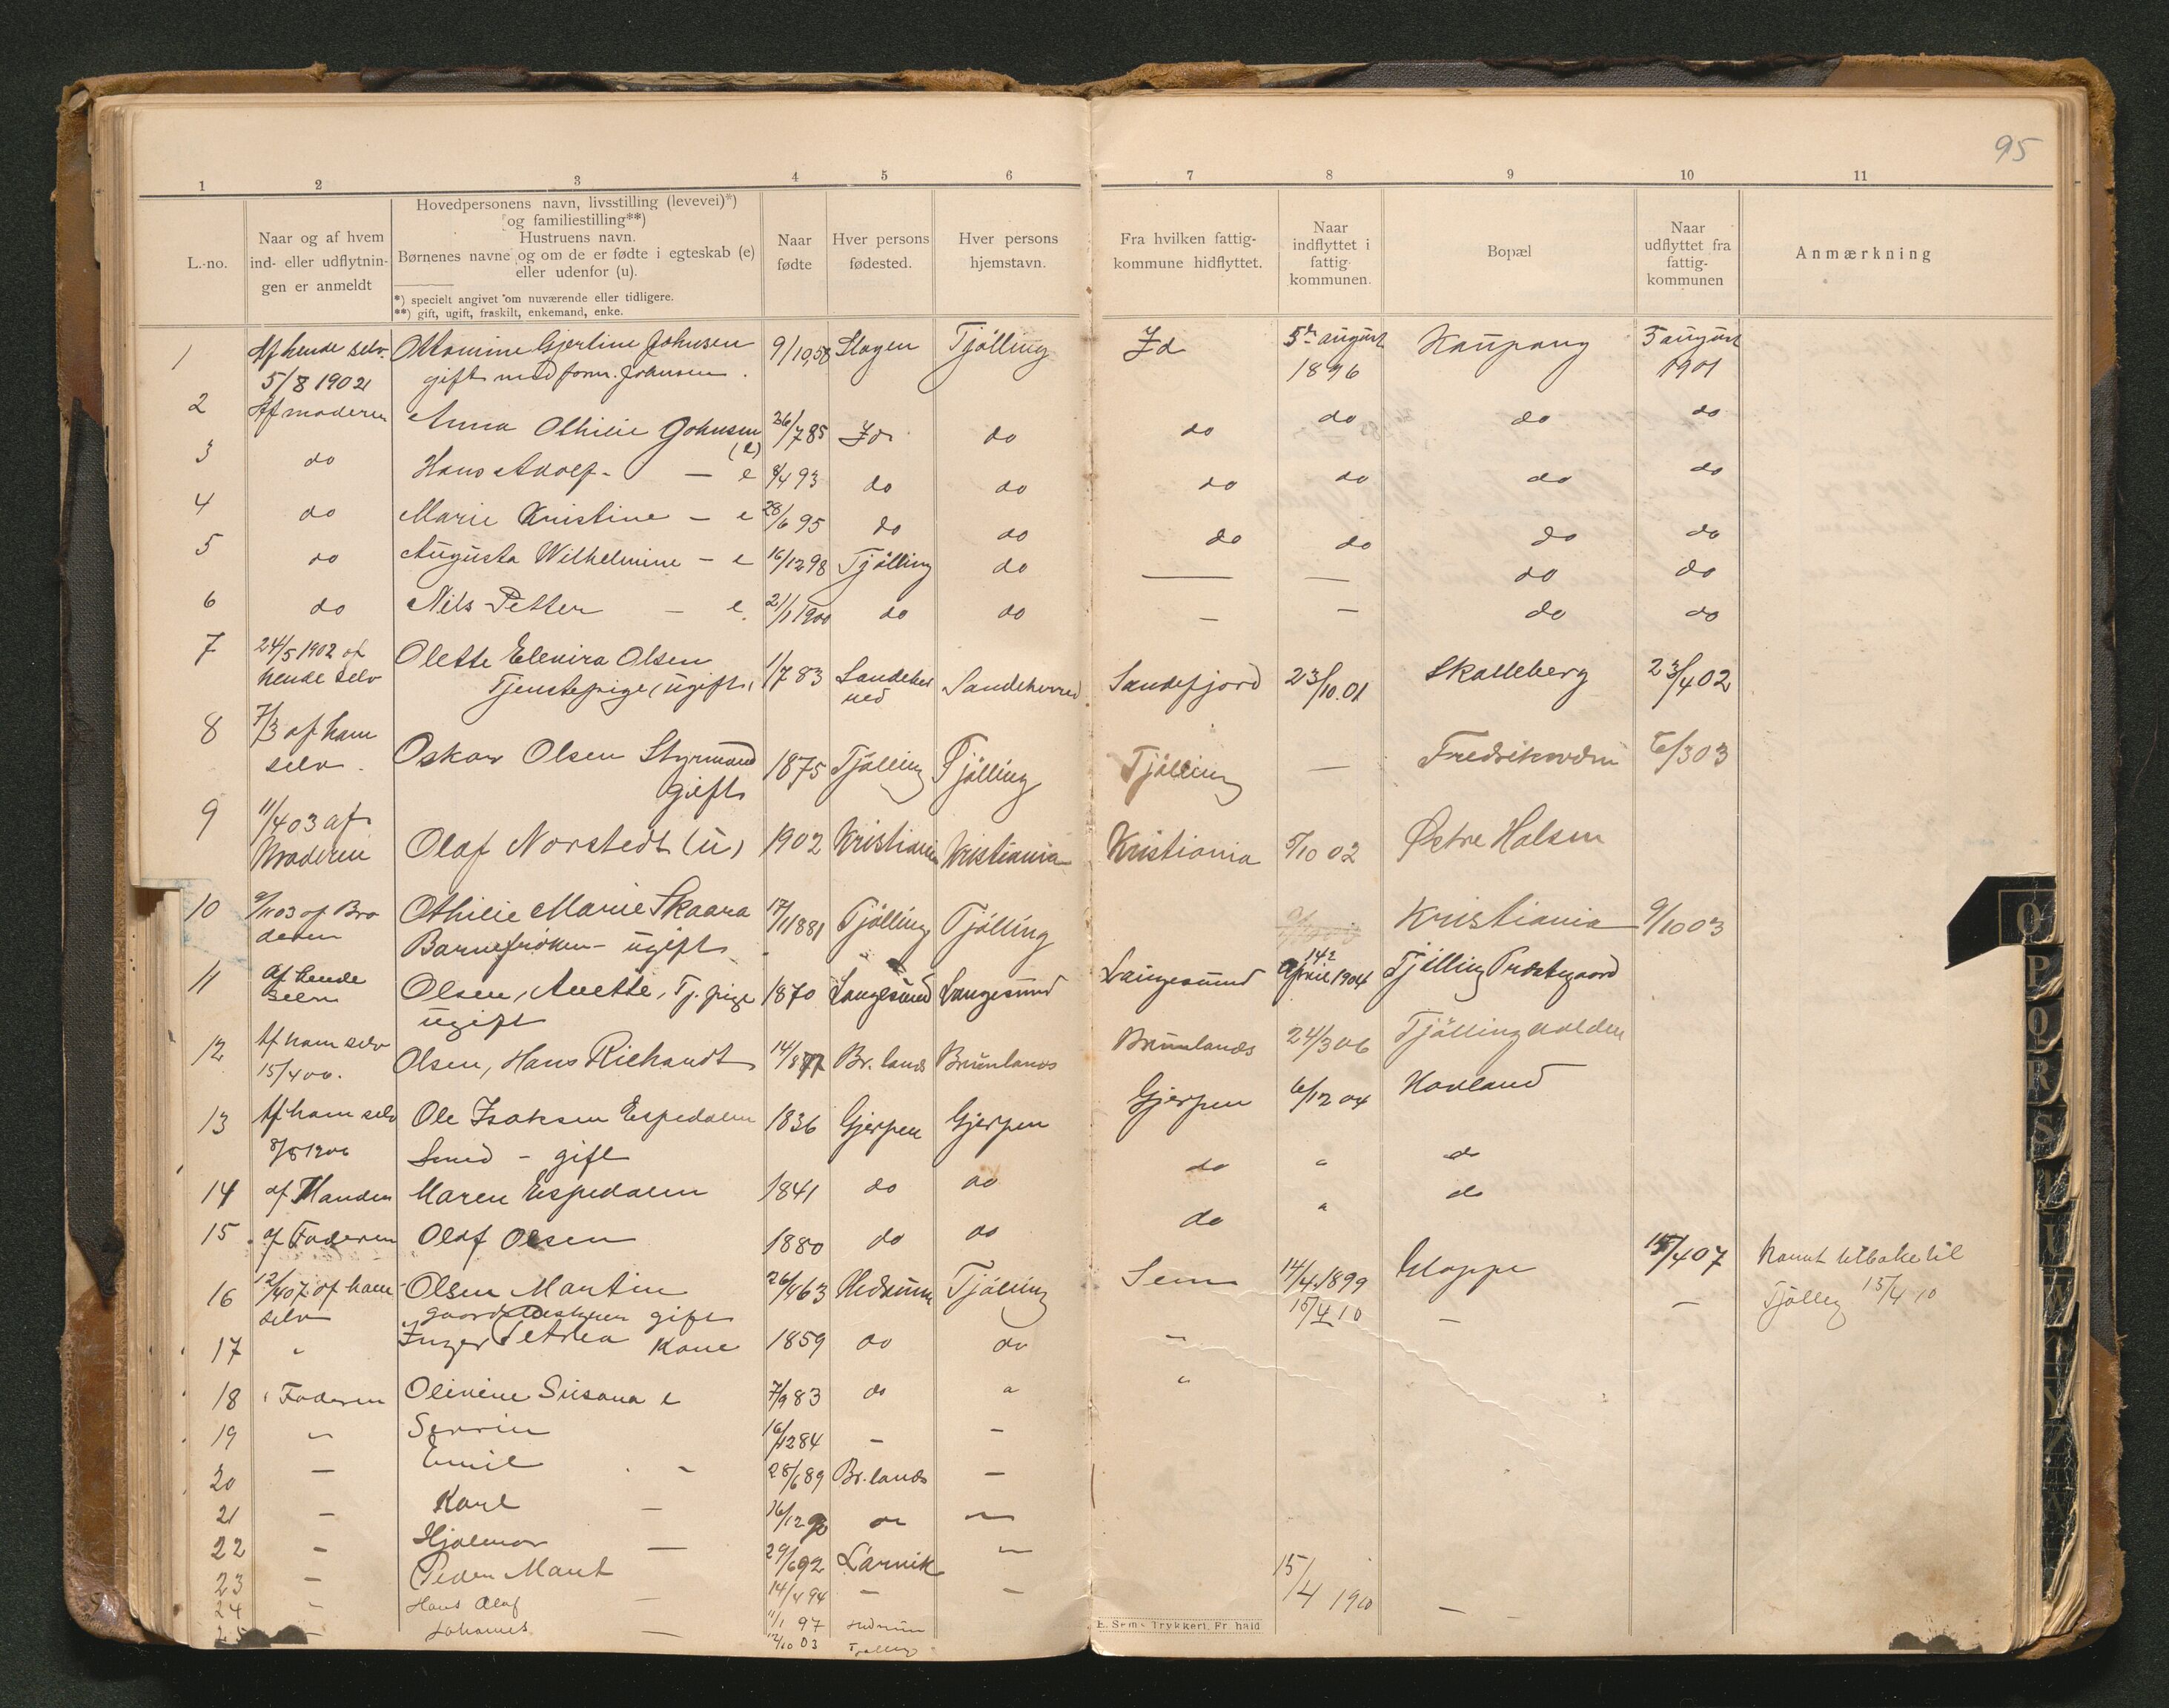 95
1 2 3 4 5 6 7 8 9 10 11
L.-no.
Naar og af hvem
ind- eller udflytnin-
gen er anmeldt
Hovedpersonens navn, livsstilling (levevei)*)
og familiestilling**)
Hustruens navn.
Børnenes navne og om de er fødte i egteskab (e)
eller udenfor (u).
*) specielt angivet om nuværende eller tidligere.
**) gift, ugift, fraskilt, enkemand, enke.
Naar
fødte
Hver persons
fødested.
Hver persons
hjemstavn.
Fra hvilken fattig-
kommune hidflyttet.
Naar
indflyttet i
fattig-
kommunen.
Bopæl
Naar
udflyttet fra
fattig-
kommunen
Anmærkning
1 Af hende selv. Ottomine Gjertine Johnsen 9/10 58 Slagen Tjölling Id 5te august Kaupang 5 august
5/8 1902 gift med Johnsen. 1896 1901
2 Af moderen Anna Othilie Johnsen (e) 26/7 85 Id do do do do do
3 do Hans Adolf - — e 8/4 93 do do do do do do
4 do Marie Kristine — e 28/6 95 do do do do do do
5 do Augusta Wilhelmine — e 16/12 98 Tjölling do — — do do
6 do Nils Petter — e. 21/1 1900 do do — — do do
7 24/5 1902 af Olette Elenira Olsen 1/7 83 Sandeher Sandeherred Sandefjord 23/10.01 Skalleberg 23/4 02
hende selv Tjenstepige (ugift) red
8 7/3 af ham Oskar Olsen Styrmand 1875 Tjölling Tjölling Tjölling — 6/3 03
selv. gift
9 11/4 03 af Olaf Norstedt (u) 1902 Kristiania Kristiania Kristiania 5/10 02 Østre Halsen
Moderen
10 9/11 03 af Bro Othilie Marie Skaara 17/1 1881 Tjölling Tjölling Kristiania 9/10 03
deren Barnefröken - ugift
11 af hende Olsen, Anette, Tj. pige 1870 Langesund Langesund Langesund 14de April 1904 Tjölling Prestegaard
selv ugift
12 Af ham selv Olsen, Hans Richardt 14/8 77 Br. lands Brunlanes Brunlands 24/3 06
15/4 00.
13 Af ham selv Ole Isaksen Espedalen 1836 Gjerpen Gjerpen Gjerpen 6/12 04 Hovland
8/5 1906 Smed - gift
14 af Manden Maren Espedalen 1841 do do do " do
15 af Faderen Olaf Olsen 1880 do do do " do
16 12/4 07 af ham Olsen Martin 26/4 63 Hedrum Tjölling Sem 14/4 1899 Kloppe 15/4 07 Kommt tilbake til
selv gift 15/4 10 — — Tjölling 15/4 10
17 " Inger Petrea Kone 1859 do do "
18 " Faderen Olivine Susana e 7/9 83 do " "
19 " Severin 16/12 84 — —
20 — Emil - 28/6 89 Br. lands —
21 — Karl — 16/12 90 do —
22 — Hjalmar — 29/6 92 Larvik —
23 — Peder Marit 14/4 94 — — 15/4 1910 — -
24 - Hans Olaf — 11/1 97 Hedrum
25 - Johannes — 12/10 03 Tjölling
E. Sem's Trykkeri, Fr.hald
O
P
Q
R
S
T
U
V
W
Y
Z